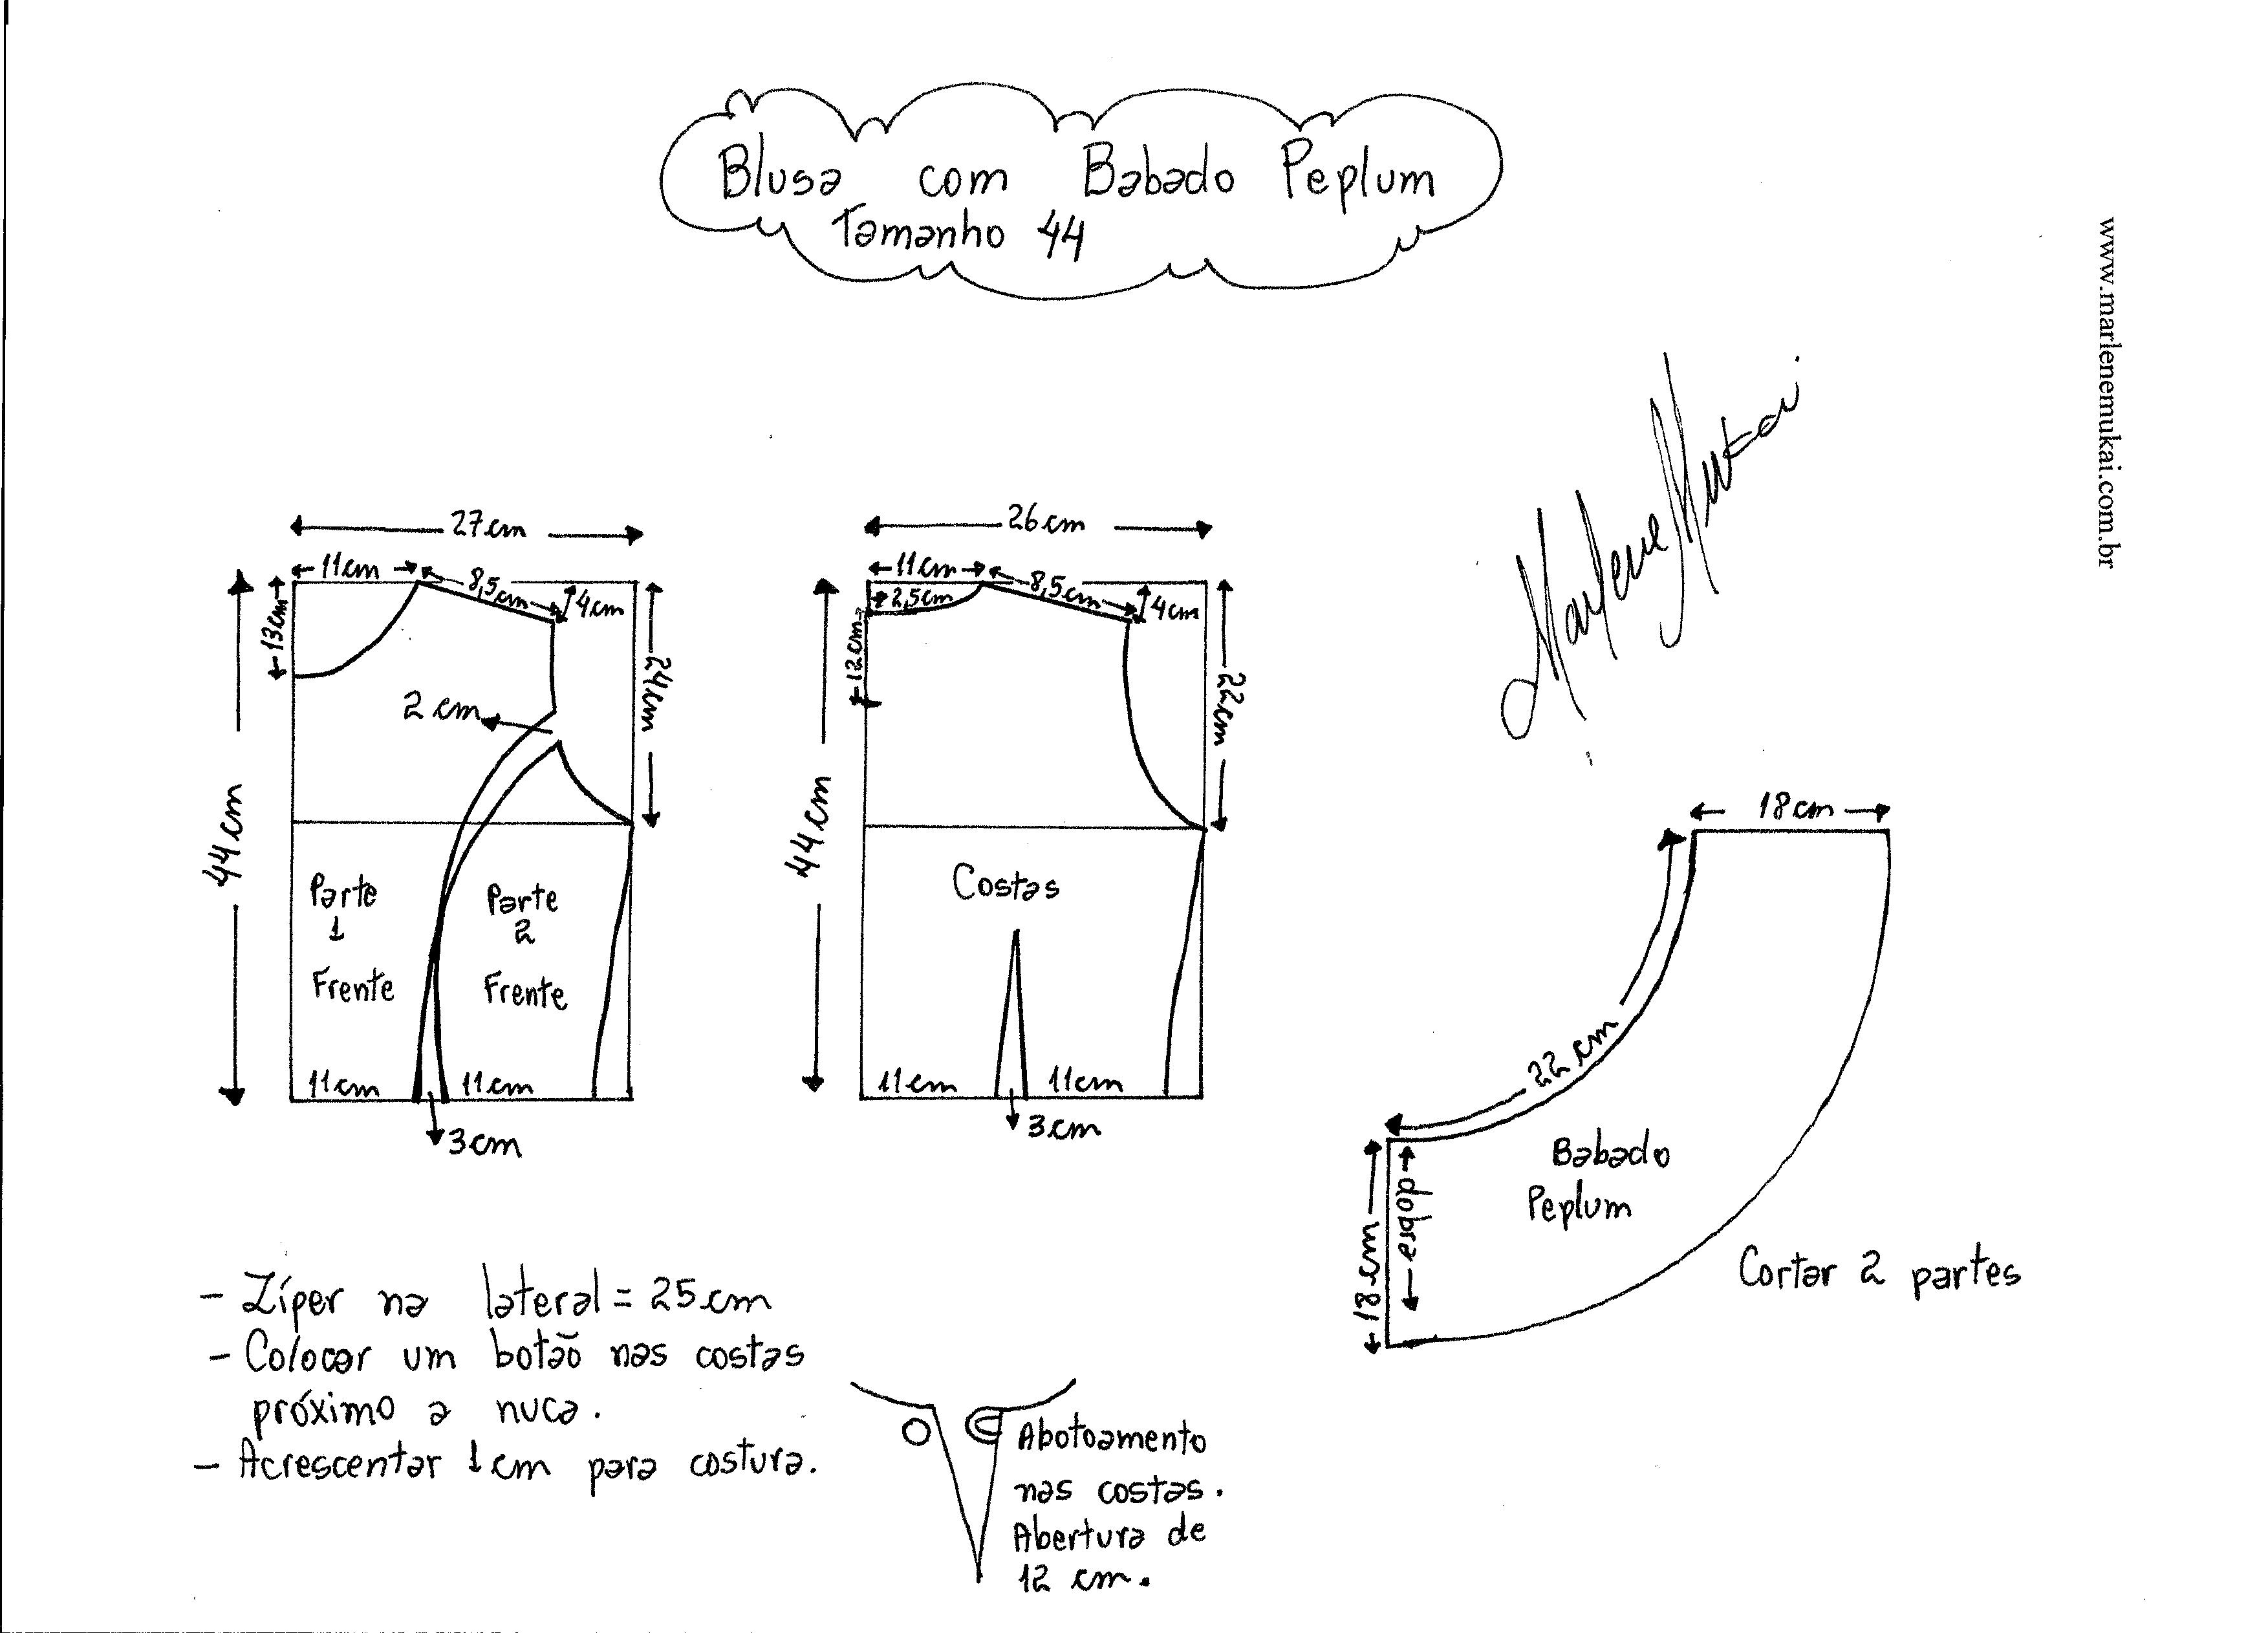 Blusa com Babado Peplum
Tamanho 44
www.marlenemukai.com.br
Marlene Mukai
27cm
11cm
8,5cm
4cm
13cm
24cm
2 cm
44cm
Parte
1
Frente
Parte
2
Frente
11cm
11cm
3cm
26cm
11cm
8,5cm
2,5cm
4cm
12cm
22cm
44cm
Costas
11cm
11cm
3cm
18cm
22cm
18cm
dobra
Babado
Peplum
Cortar 2 partes
- Zíper na lateral = 25cm
- Colocar um botão nas costas
próximo a nuca.
- Acrescentar 1cm para costura.
Abotoamento
nas costas.
Abertura de
12 cm.